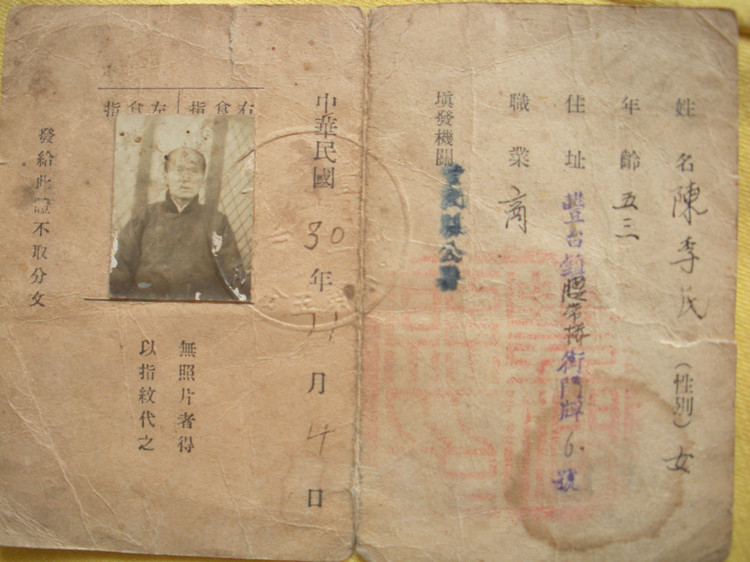 姓名 陳李氏 (性別) 女
年齡 五三
住址 豐台鎮腰常橋街門牌6號
職業 商
填發機關 縣公署
中華民國30年11月4日
右食指
左食指
無照片者得
以指紋代之
發給此證不取分文